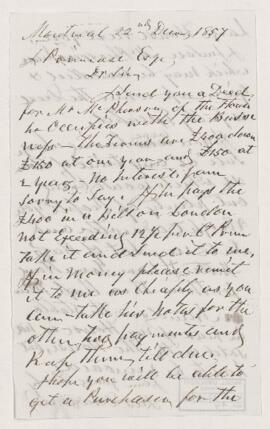 Montreal 22nd Decmr 1857
Esqr
Dr Sir,
I send you a Deed
for Mr McPherson, of the House
he Occupies with the Busse
ness - the Terms are £400 down
£150 at one year and £150 at
2 years - No Interest I am
sorry to Say. If he pays the
£400 in a Bill on London
not Exceeding 12½ per Ct Prm
take it and send it to me,
If in Money please remit
it to me as Cheaply as you
can - take his Notes for the
other two payments and
Keep them till due.
I hope you will be able to
get a Purchaser for the